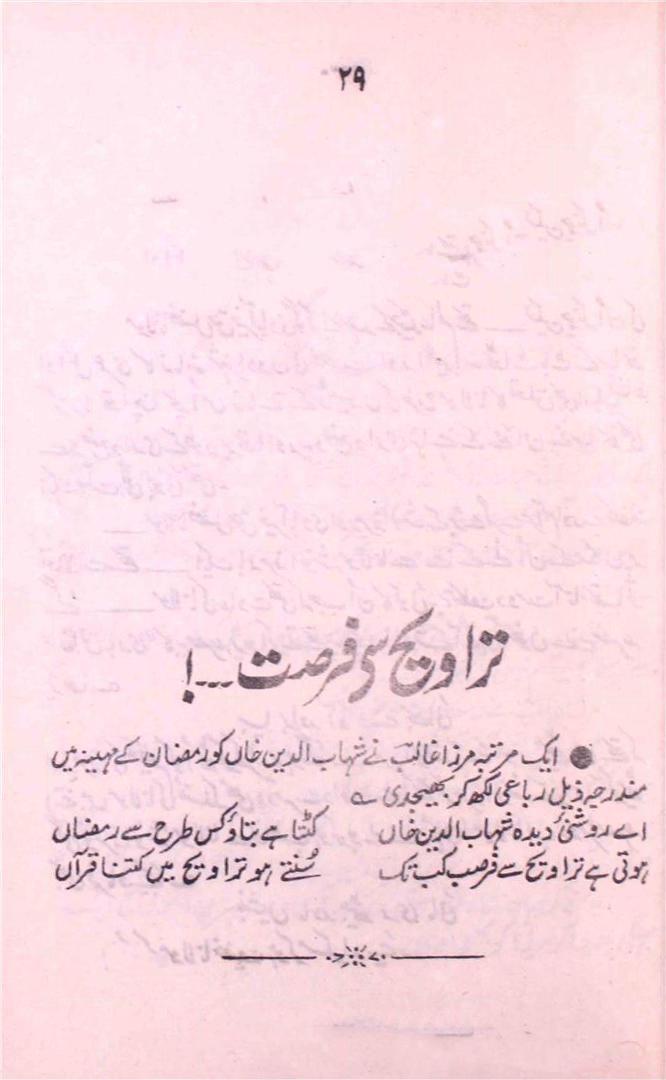 ۲۹
تراویح سی فرصت...!
● ایک مرتبہ مرزا غالب نے شہاب الدین خاں کو رمضان کے مہینہ میں
مندرجہ ذیل رباعی لکھ کر بھیجدی ے
اے روشنئ دیدہ شہاب الدین خاں کٹتا ہے بتاؤ کس طرح سے رمضاں
ہوتی ہے تراویح سے فرصت کب تک سُنتے ہو تراویح میں کتنا قرآں